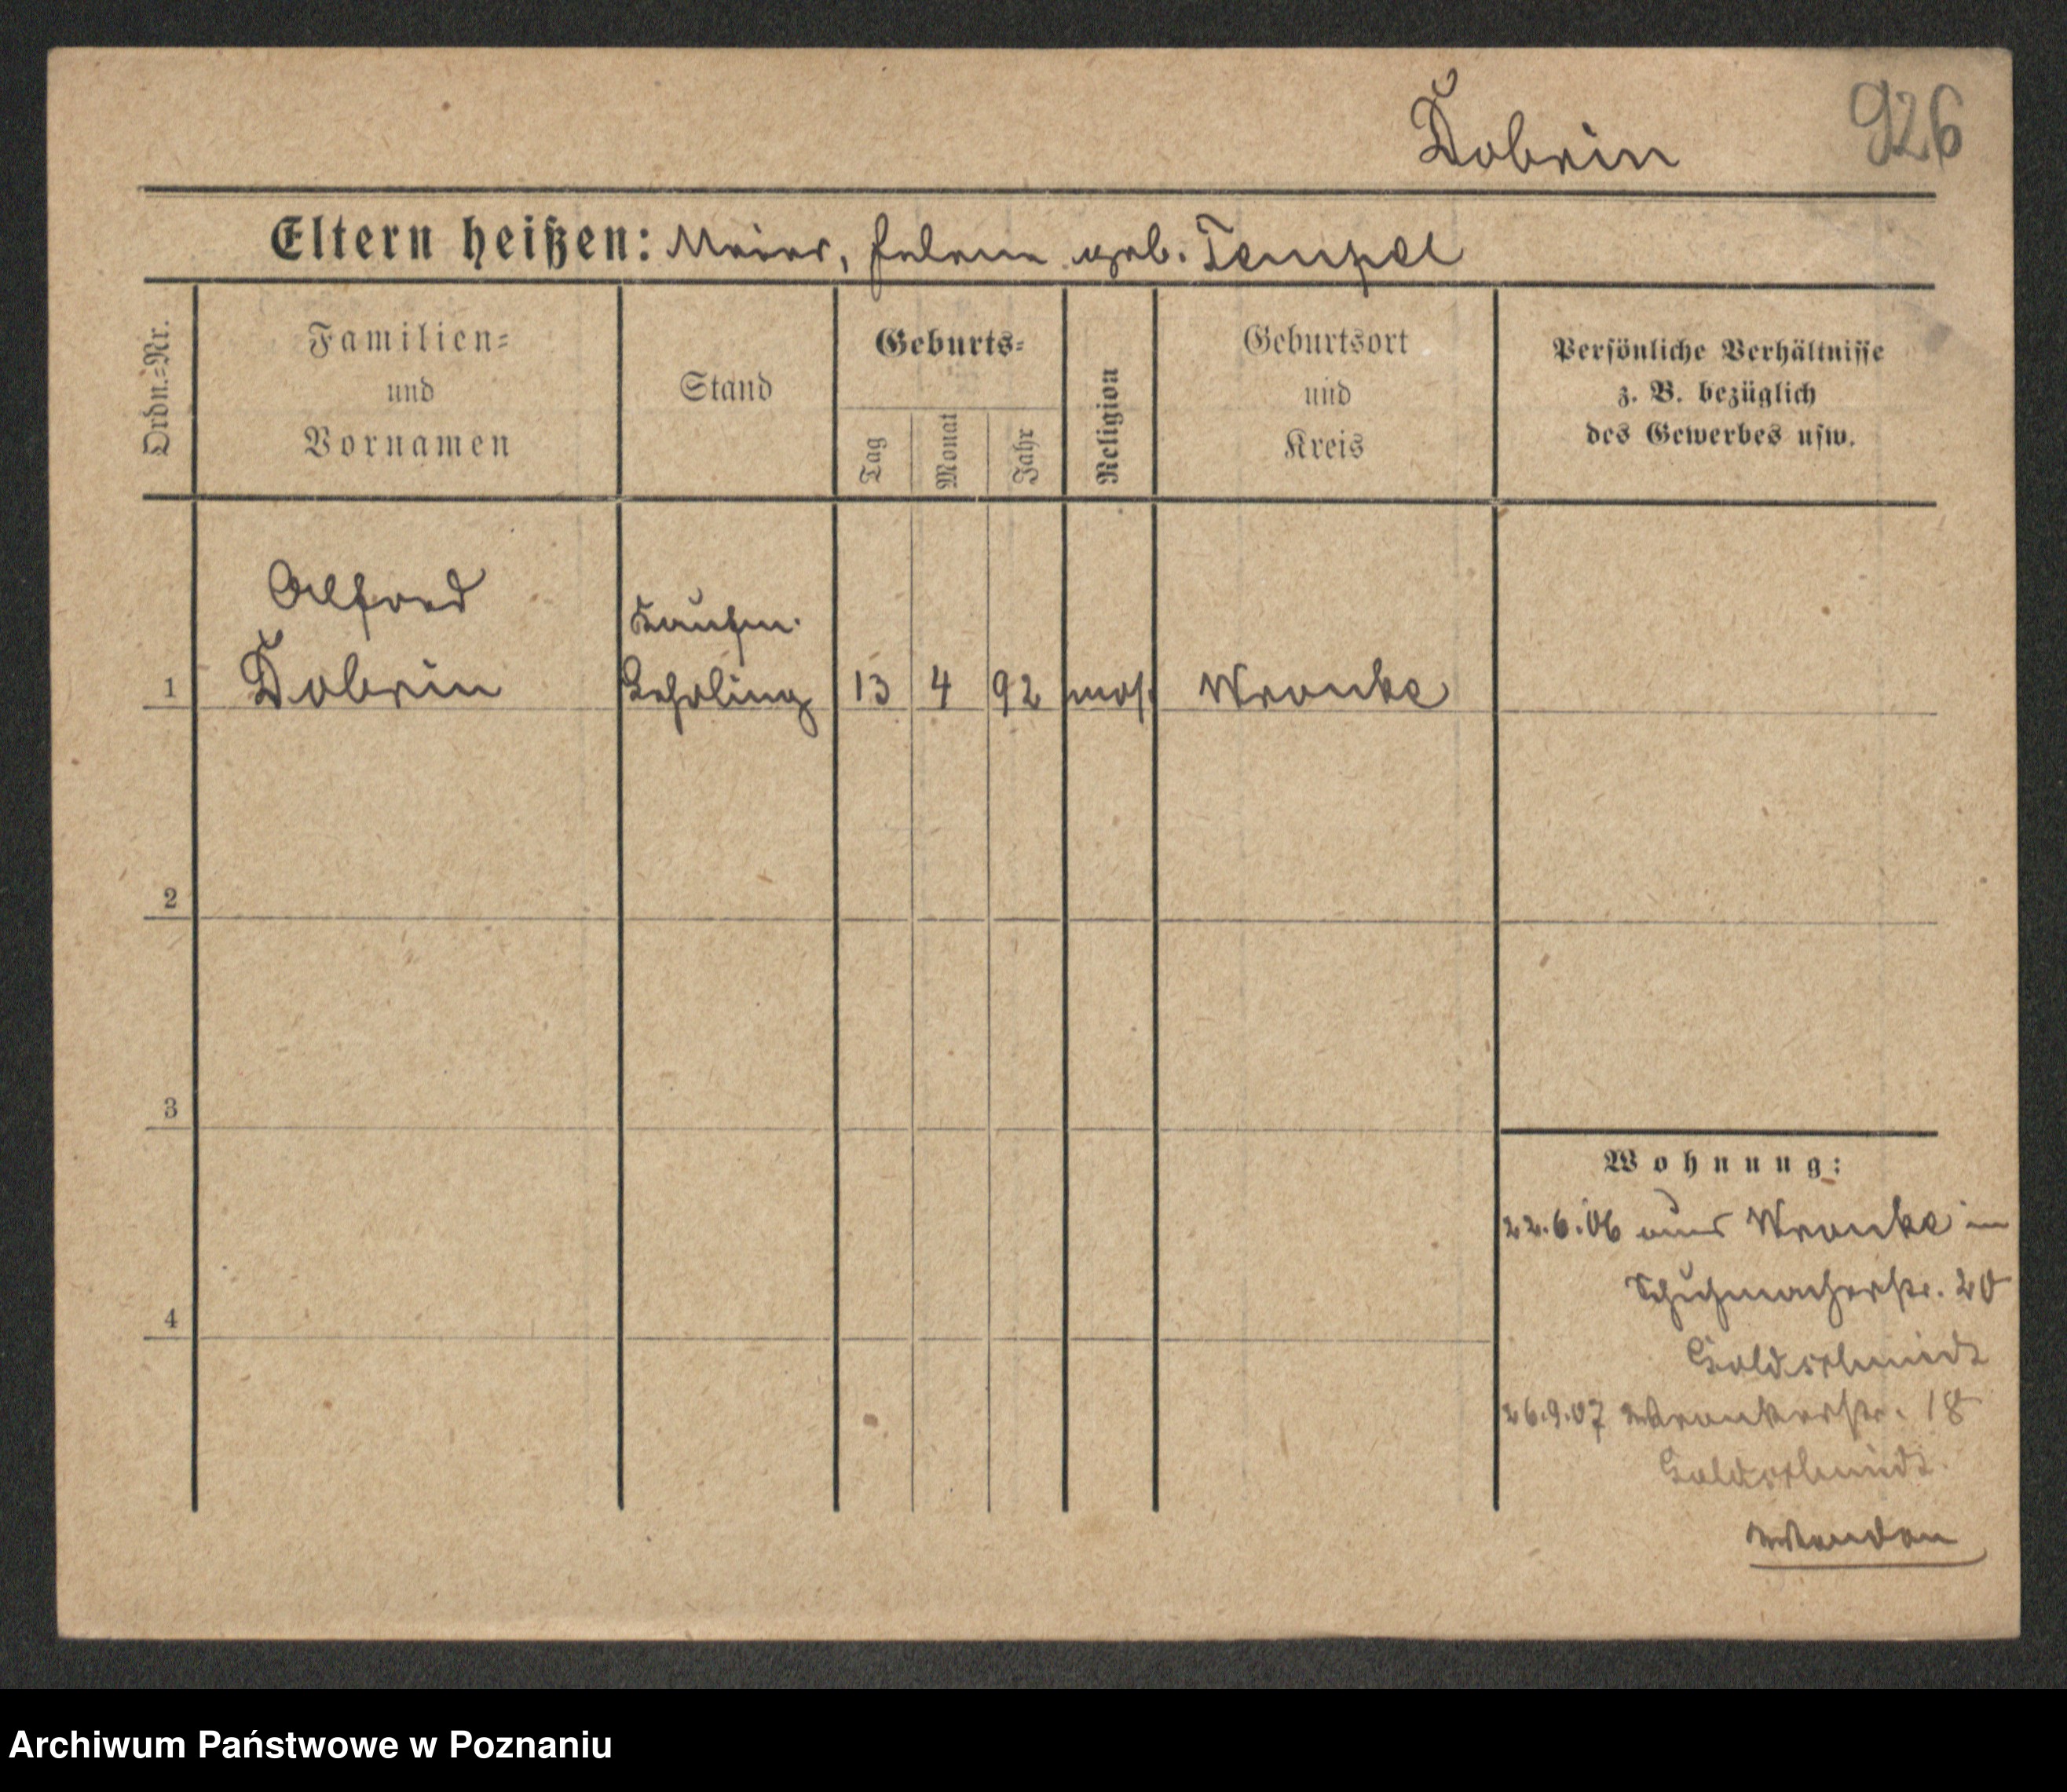 Dobrin 926
Eltern heißen: Meier, Helene geb. Tempel
Ordn.=Nr.
Familien=
und
Vornamen
Stand
Geburts=
Tag
Monat
Jahr
Religion
Geburtsort
und
Kreis
Persönliche Verhältnisse
z. B. bezüglich
des Gewerbes usw.
Alfred
Dobrin
Kaufm.
1 Lehrling 13 4 92 mos. Wronke
2
3
4
Wohnung:
22.6.06 aus Wronke in
Schuhmacherstr. 20
Goldschmidt
26.9.07 Wronkerstr. 18
Goldschmidt